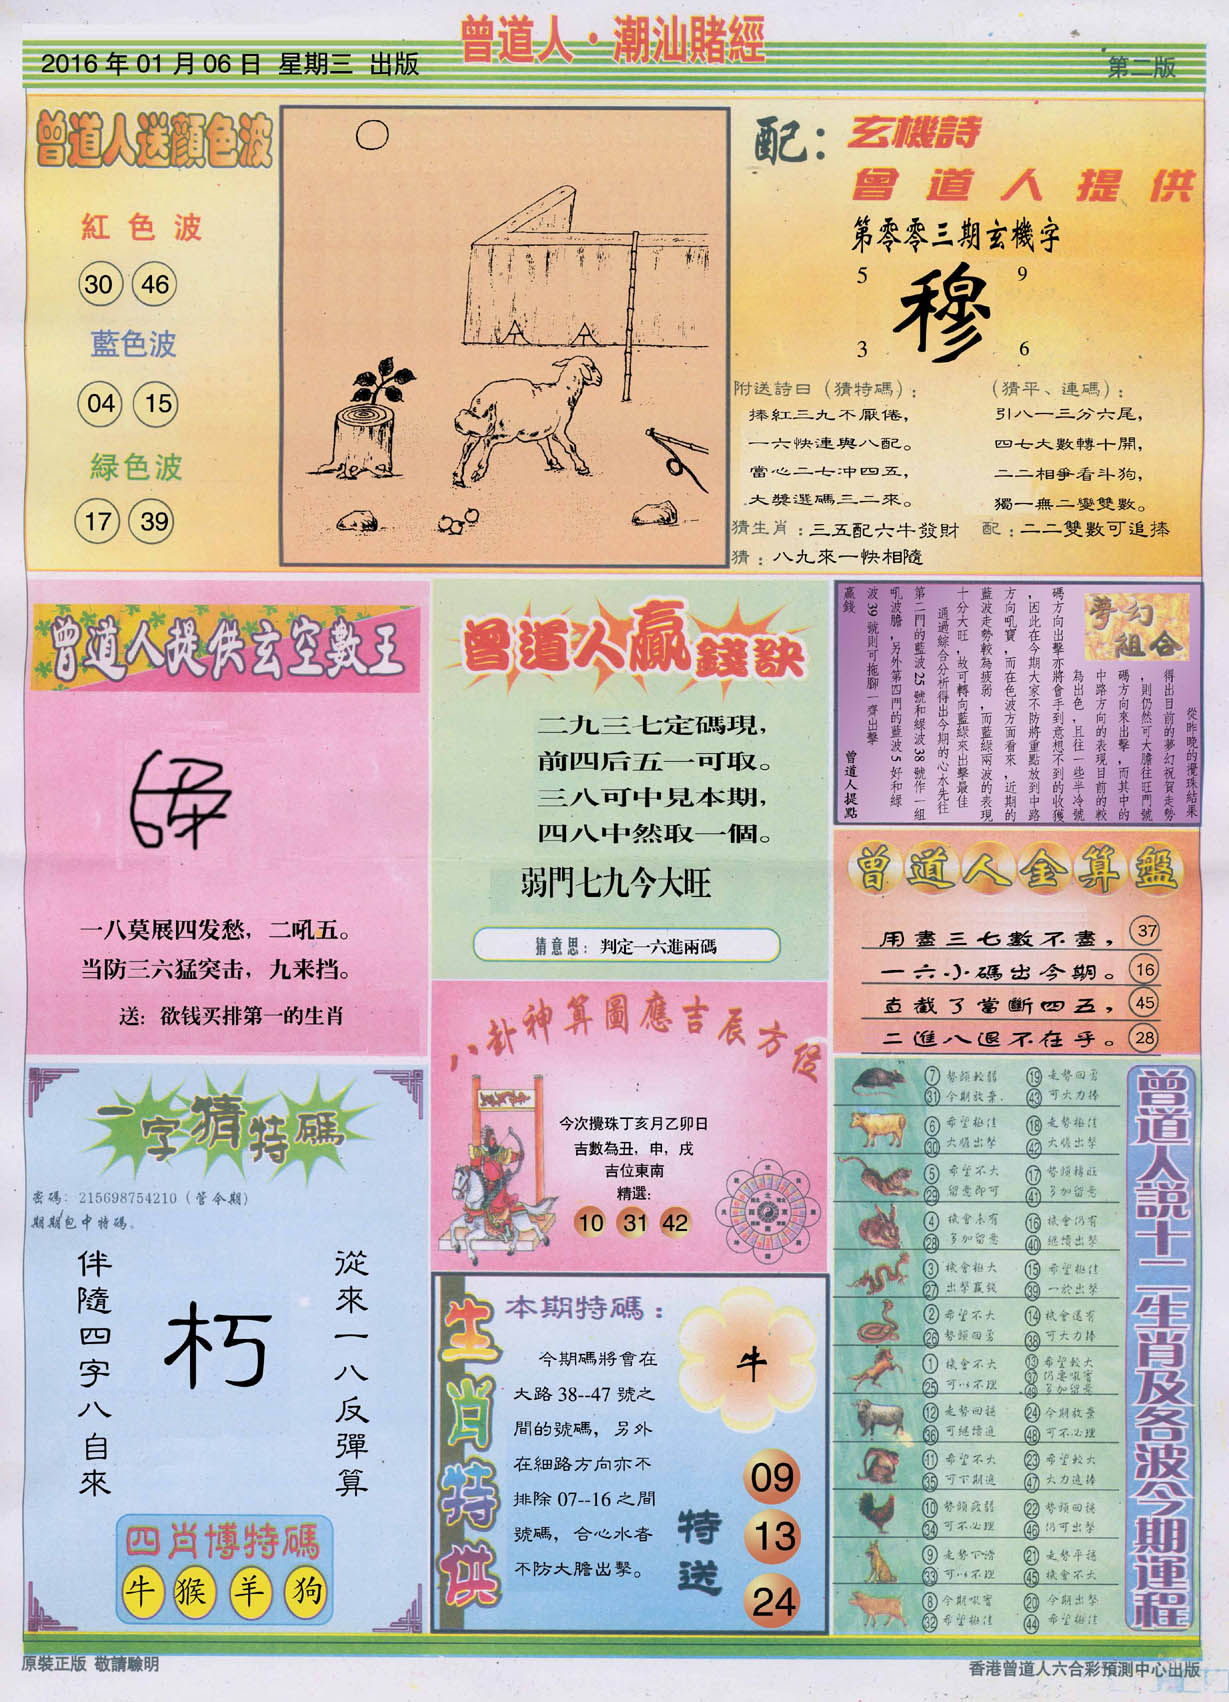 曾道人·潮汕賭經
2016年01月06日 星期三 出版
第二版
曾道人送顔色波
紅色波
30 46
藍色波
04 15
緑色波
17 39
配：玄機詩
曾道人提供
第零零三期玄機字
5 9
穆
3 6
附送詩曰（猜特碼）：
捧紅三九不厭倦，
一六快連與八配。
當心二七冲四五，
大獎選碼三二來。
（猜平、連碼）：
引八一三分六尾，
四七大數轉十開，
二二相爭看斗狗，
獨一無二變雙數。
猜生肖：三五配六牛發財
配：二二雙數可追捧
猜：八九來一快相隨
曾道人提供玄空數王
一八莫展四发愁，二吼五。
当防三六猛突击，九来挡。
送：欲钱买排第一的生肖
曾道人贏錢訣
二九三七定碼現，
前四后五一可取。
三八可中見本期，
四八中然取一個。
弱門七九今大旺
猜意思：判定一六進兩碼
夢幻組合
從昨晚的攪珠結果
得出目前的夢幻祝賀走勢
，則仍然可大膽往旺門號
碼方向來出擊，而其中的
中路方向的表現目前的較
為出色，且往一些半冷號
碼方向出擊亦將會手到意想不到的收獲
，因此在今期大家不防將重點放到中路
方向吼寶，而在色波方面看來，近期的
藍波走勢較為疲弱，而藍綠兩波的表現
十分大旺，故可轉向藍綠來出擊最佳
通過綜合分析得出今期的心水先往
第二門的藍波25號和綠波38號作一組
吼波膽，另外第四門的藍波5好和綠
波39號則可拖腳一齊出擊
贏錢
曾道人提點
曾道人金算盤
用盡三七數不盡，37
一六小碼出今期。16
直截了當斷四五，45
二進八退不在乎。28
八卦神算圖應吉辰方位
今次攪珠丁亥月乙卯日
吉數為丑，申，戌
吉位東南
精選:
10 31 42
一字猜特碼
密碼：215698754210（管今期）
期期包中特碼。
從來一八反彈算
朽
伴隨四字八自來
四肖博特碼
牛 猴 羊 狗
生肖特供
本期特碼：
今期碼將會在
大路38--47號之
間的號碼，另外
在細路方向亦不
排除07--16之間
號碼，合心水者
不防大膽出擊。
牛
特送
09
13
24
曾道人説十二生肖及各波今期運程
7 勢頭較弱 19 走勢回勇
31 今期放棄 43 可大力捧
6 希望極佳 18 走勢極佳
30 大膽出擊 42 大膽出擊
5 希望不大 17 勢頭轉旺
29 留意即可 41 多加留意
4 機會未有 16 機會仍有
28 多加留意 40 繼續出擊
3 機會極大 15 希望極佳
27 出擊贏錢 39 一於出擊
2 希望不大 14 機會還有
26 勢頭回勇 38 可大力捧
1 機會不大 13 希望較大
25 可以不理 37 仍要吼實
49 多加留意
12 走勢回穩 24 今期放棄
36 可繼續追 48 可不必理
11 希望不大 23 希望較大
35 可下期追 47 大力追捧
10 勢頭疲弱 22 勢頭回穩
34 可不必理 46 仍可出擊
9 走勢下滑 21 走勢平穩
33 可以不理 45 機會不大
8 今期吼實 20 今期出擊
32 希望極佳 44 希望極佳
原裝正版 敬請驗明
香港曾道人六合彩預測中心出版